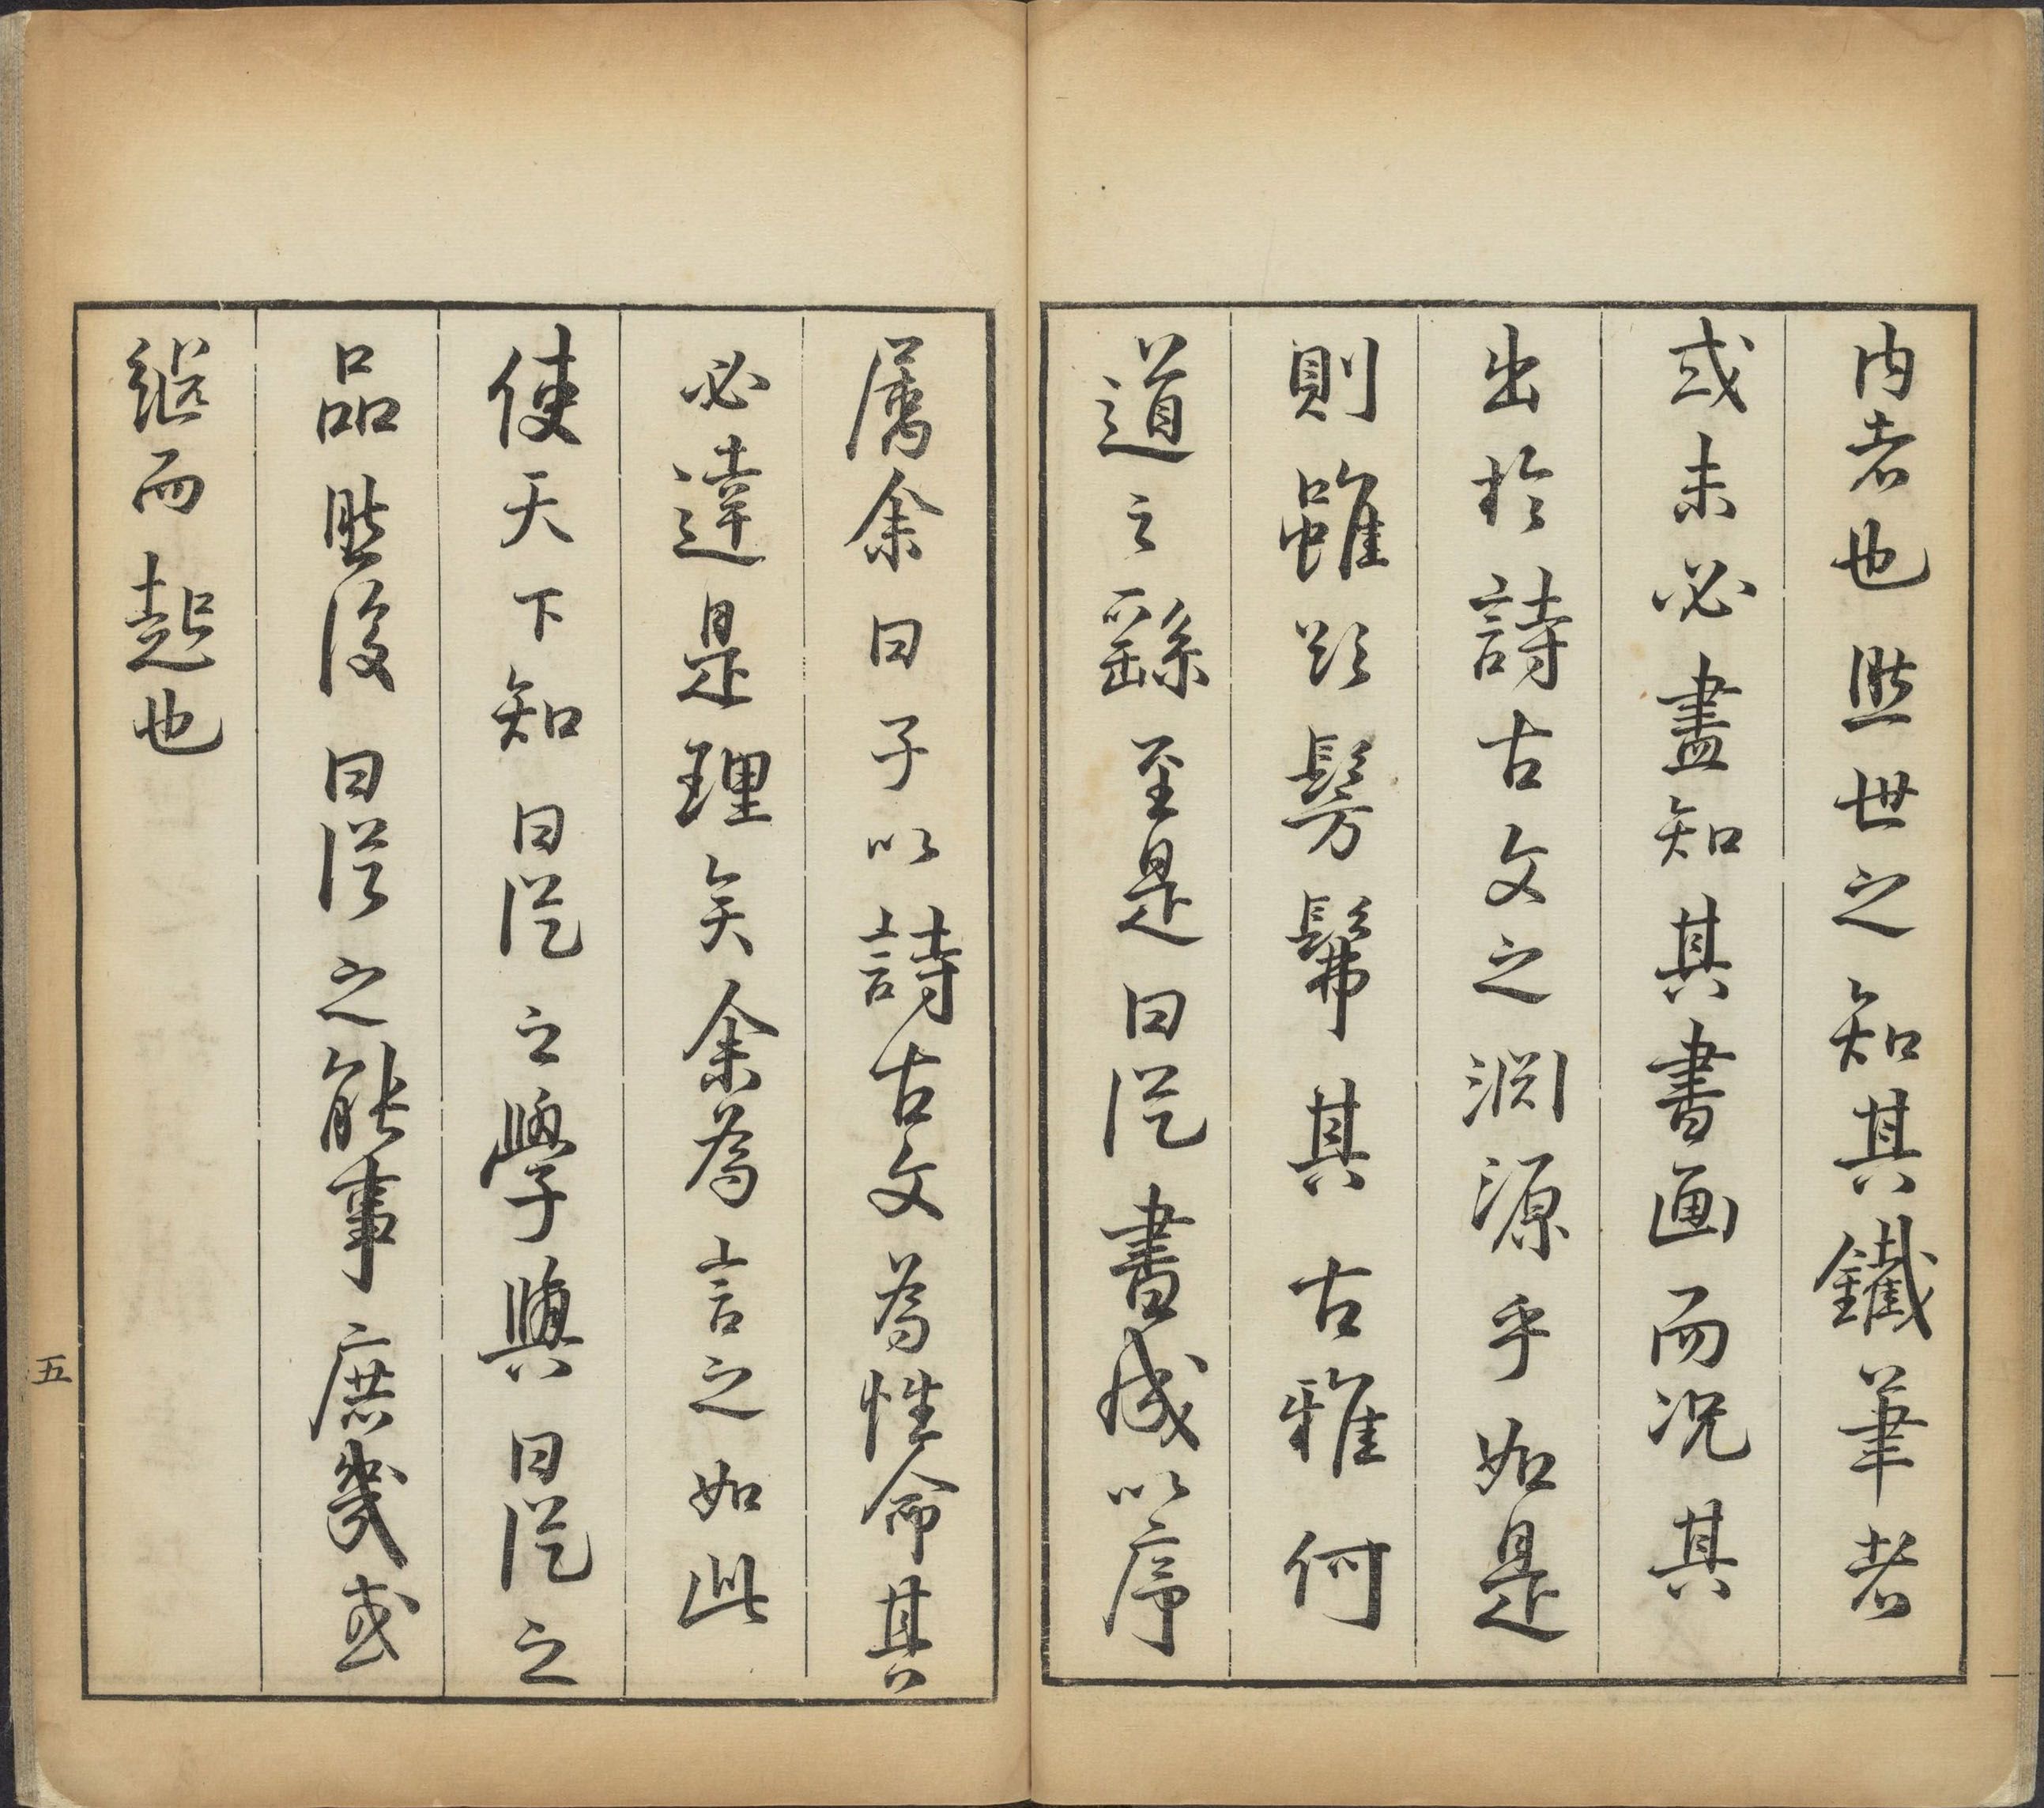 内者也然世之知其鐵筆者
或未必盡知其書画而况其
出於詩古文之淵源乎如是
則雖欲髣髴其古雅何
道之繇至是曰從書成以序
屬余曰子以詩古文為性命其
必達是理矣余為言之如此
使天下知曰從之學與曰從之
品然後曰從之能事庶幾或
繼而起也
五